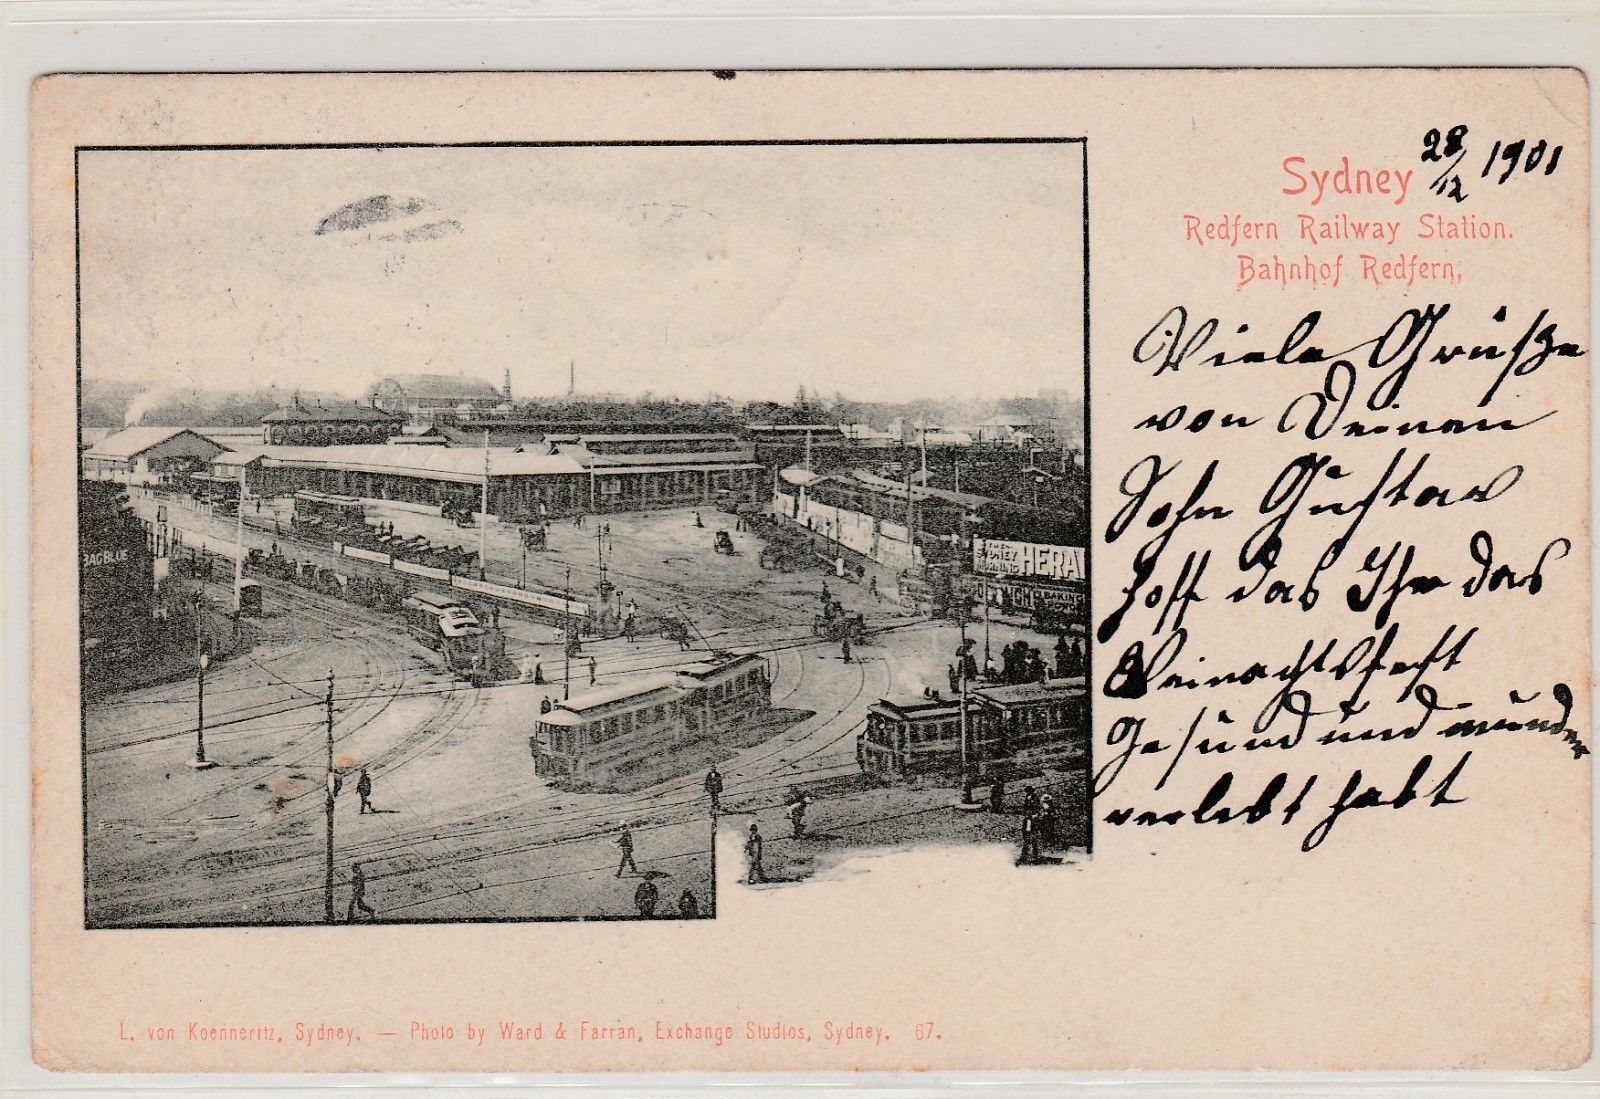 Sydney 28/12 1901
Redfern Railway Station.
Bahnhof Redfern.
Viele Grüße
von Deinen
Sohn Gustav
hoff das Ihr das
Weinachtsfest
Gesund und munder
verlebt habt
BAG BLUE
HERA
BAKING
L. von Koenneritz, Sydney. — Photo by Ward & Farran, Exchange Studios, Sydney. 67.